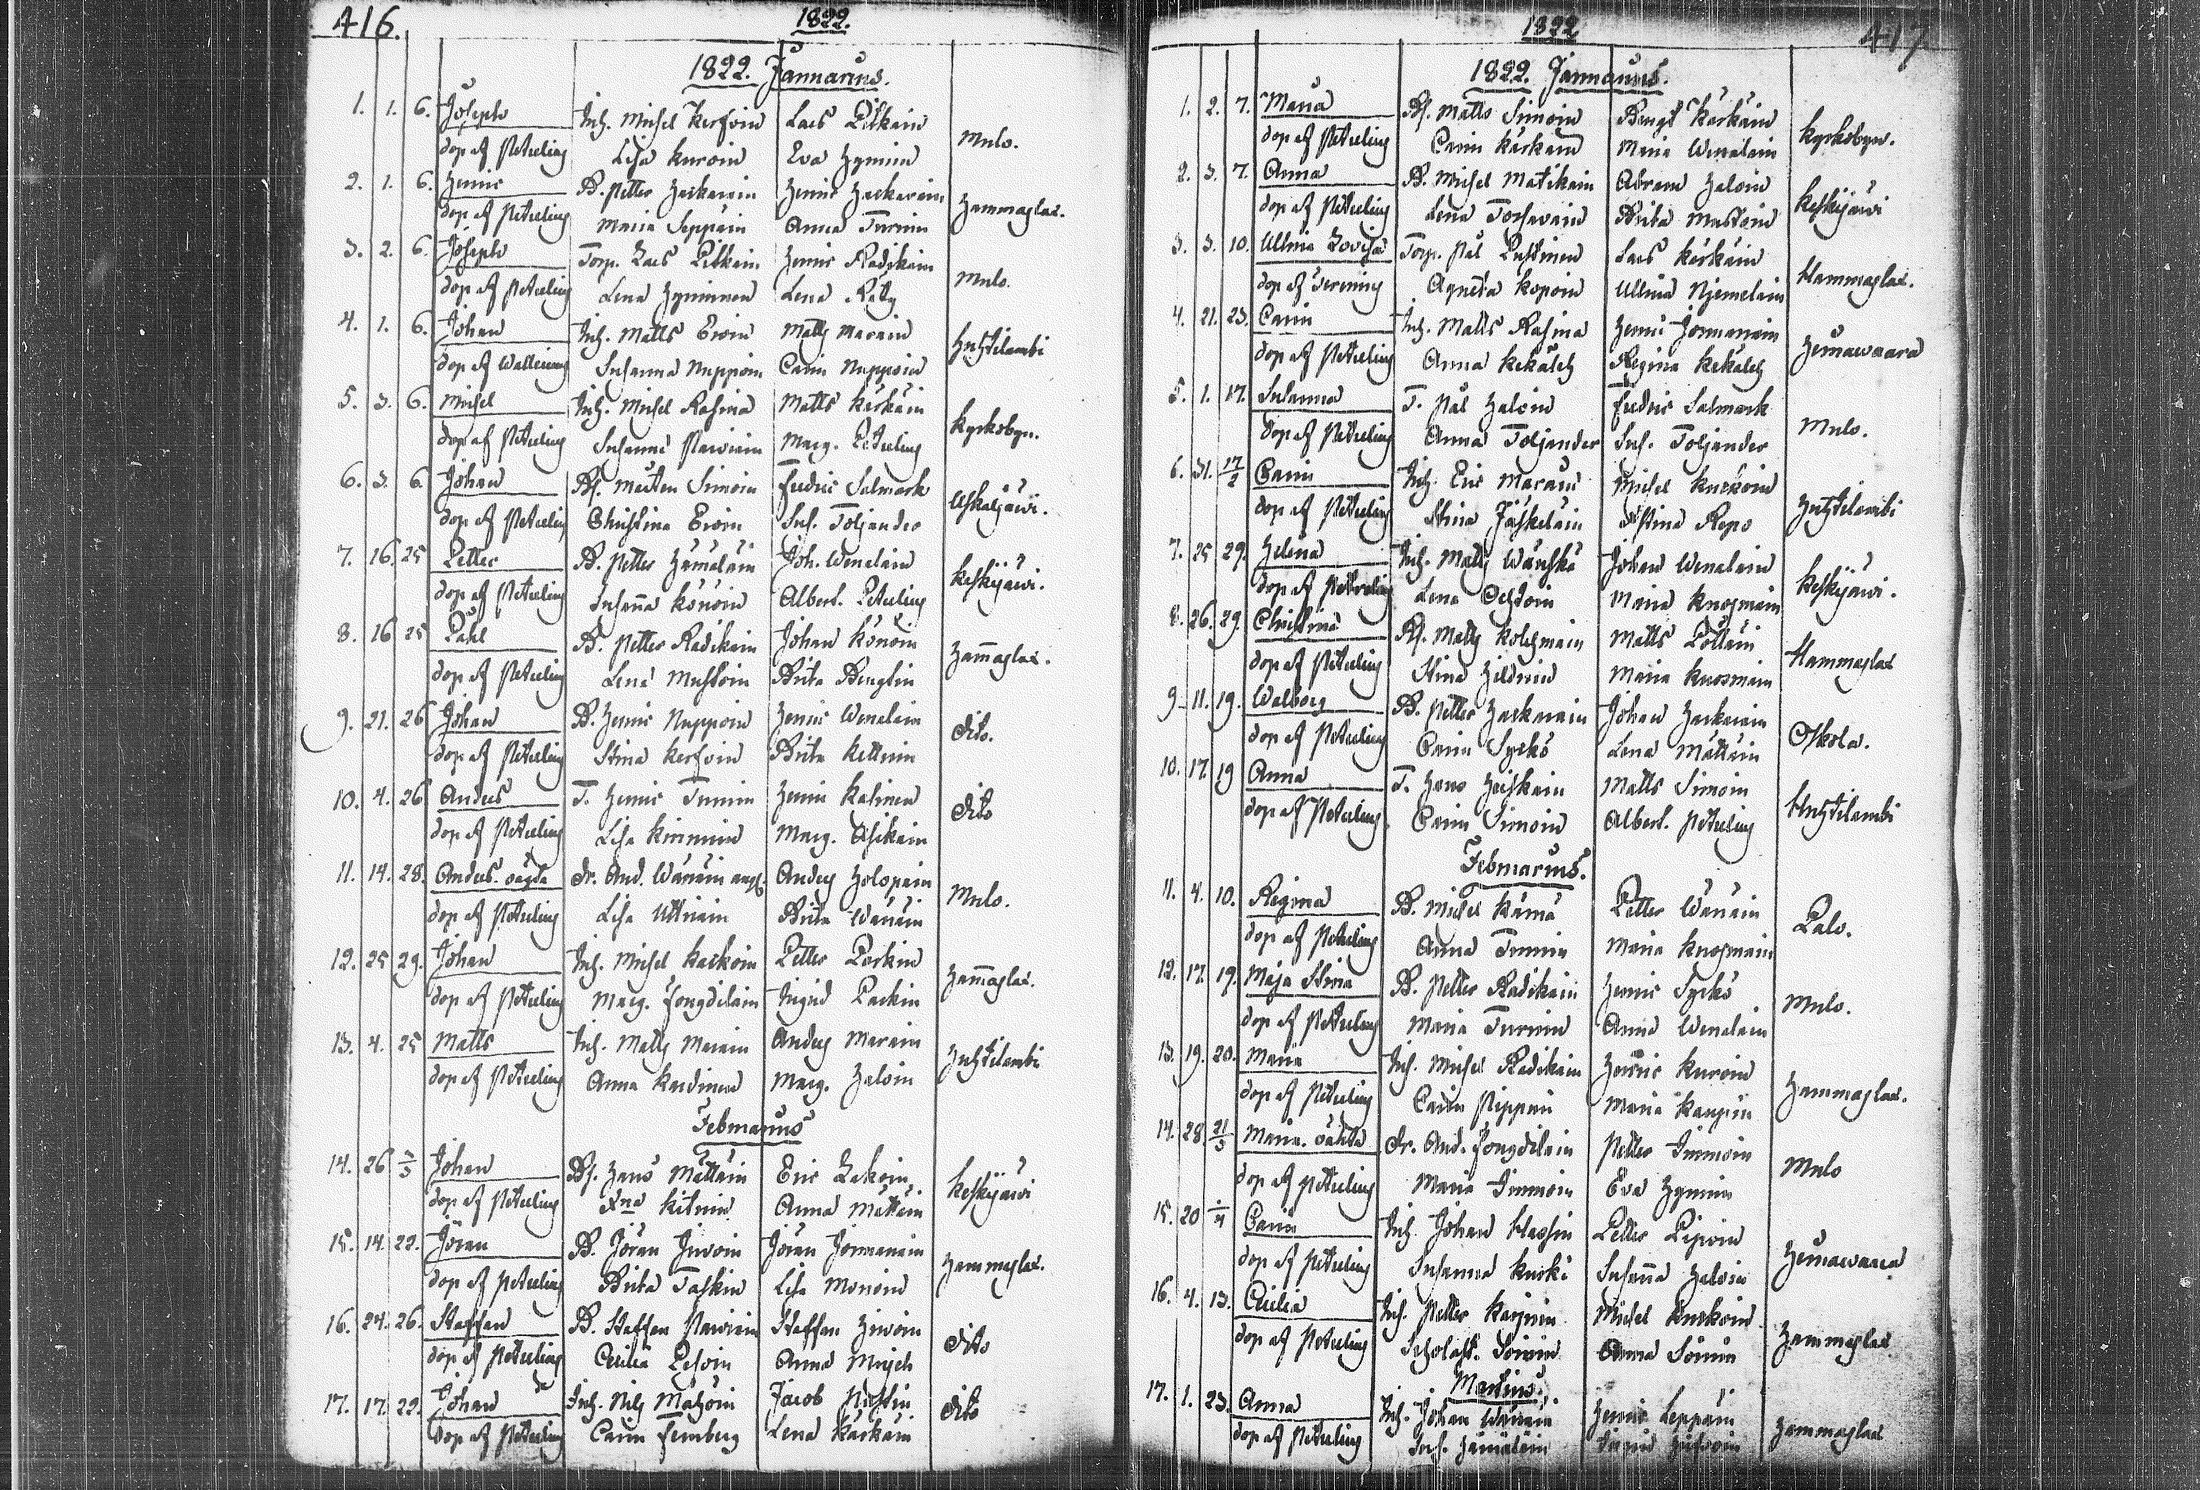 416.
1822.
1822. Januarius.
1. 1. 6. Joseph Inh. Michel Kerfvin Lars Pitkäin Mulo.
dop af Petreling Lisa Kuroin Eva Hymin
2. 1. 6. Henric B. Petter Zachariin Henric Zachariain Hammaslax.
dop af Petreling Maria Seppäin Anna Turuin
3. 2. 6. Joseph Torp. Lars Pitkäin Henric Rädikäin Mulo.
dop af Petreling Lena Hyminnen Lena Räty
4. 1. 6. Johan Inh. Matts Eroin Matts Marain Huhtilambi
dop af Walleriung Susanna Nuppoin Carin Nuppoin
5. 3. 6. Michel Inh. Michel Rasina Matts Kärkäin Kyrkobyn.
dop af Petreling Susanna Parviain Marg. Petreling
6. 3. 6. Johan Bf. Mårten Simoin Fredric Salmark Uskaljärvi.
dop af Petreling Christina Eroin Sus. Toljander
7. 16. 25 Petter B. Petter Hämäläin Joh. Wenäläin Keskijärvi.
dop af Petreling Susanna Könöin Albert. Petreling
8. 16 25 Påhl B. Petter Rädikäin Johan Könöin Ham̄aslax.
dop af Petreling Lena Mustoin Brita Bengtin
9. 21. 26 Johan B. Henric Nuppoin Henric Wenäläin dito.
dop af Petreling Stina Kerfvin Brita Kettuin
10. 4. 26 Anders T. Henric Turuin Henric Kalinen dito
dop af Petreling Lisa Kinnuin Marg. Asikain
11. 14. 28. Anders. oägta Dr. And. Wänäin angf. Anders Holopain Mulo.
dop af Petreling Lisa Uttriain Brita Wänäin
12. 25 29. Johan Inh. Michel Karkoin Petter Parkin Ham̄aslax.
dop af Petreling Marg. Pongdilain Ingrid Parkin
13. 4. 25 Matts Inh. Matts Marain Anders Marain Huhtilambi
dop af Petreling Anna Kardinen Marg. Haloin
Februarius
14. 26 3/3 Johan Bf. Hans Mättäin Eric Lakoin Keskijärvi
dop af Petreling Ana Kituin Anna Mättäin
15. 14. 22. Jöran B. Jöran Jivoin Jöran Jormanain Hammaslax.
dop af Petreling Brita Taskin Lisa Monoin
16. 24. 26. Staffan B. Staffan Parviain Staffan Hivoin dito
dop af Petreling Cecilia Pesoin Anna Mujeh
17. 17. 22. Johan Inh. Nils Mähöin Jacob Purtin dito
dop af Petreling Carin Fernberg Lena Kärkäin
1822
417
1822. Januarius.
1. 2. 7. Maria Bf. Matts Simoin Bengt Kärkäin Kyrkobyn.
dop af Petreling Carin Kärkäin Maria Wenäläin
2. 3. 7. Anna B. Michel Matikain Abram Haloin Keskijärvi
dop af Petreling Lena Torfvain Brita Mustoin
3. 3. 10. Ullrica Lovisa Torp. Pål Pustinen Lars Kärkäin Hammaslax.
dop af Agneta Kopoin Ullrica Njemeläin
4. 21. 23. Carin Inh. Matts Rasina Henric Jormanain Heinäwaara
dop af Petreling Anna Kekäleh Regina Kekäleh
5. 1. 17. Susanna T. Pål Haloin Fredric Salmark Mulo.
dop af Petreling Anna Toljander Sus. Toljander
6. 31. 17/2 Carin Inh. Eric Marain Michel Kurkoin Huhtilambi
dop af Petreling Stina Jäskeläin Stina Repo
7. 25 29. Helena Inh. Matts Wänskä Johan Wenäläin Keskijärvi.
dop af Petreling Lena Oestoin Maria Knosmain
8. 26. 29. Christina Bf. Matts Kolehmain Matts Pöllöin Hammaslax
dop af Petreling Stina Hildnin Maria Knosmain
9. 11. 19. Walborg B. Petter Zacharain Johan Zacharain Oskola.
dop af Petreling Carin Syrkö Lena Mättäin
10. 17. 19 Anna T. Hans Heiskain Matts Simoin Huhtilambi
dop af Petreling Carin Simoin Albert. Petreling
Februarius.
11. 4. 10. Regina B. Michel Kärnä Petter Wänäin Palo.
dop af Petreling Anna Turuin Maria Knosmain
12. 17. 19. Maja Stina B. Petter Rädikäin Henric Syrkö Mulo.
dop af Petreling Maria Turuin Anna Wenäläin
13. 19. 20. Maria Inh. Michel Rädikäin Henric Kuroin Hammaslax.
dop af Petreling Carin Pippuri Maria Kaupin
14. 28. 21/3 Maria. oäkta Dr. And. Pongdilain Petter Immoin Mulo
dop af Petreling Maria Immoin Eva Hymin
15. 20 1/4 Carin Inh. Johan Hassin Petter Pijroin Heinäwaara
dop af Petreling Susanna Kurki Susanna Haloin
16. 4. 13. Cecilia Inh. Petter Karjuin Michel Kurkoin Hammaslax
dop af Petreling Scholast. Soinin Anna Soinin
Martius.
17. 1. 23. Anna Inh. Johan Wänäin Henric Leppäin Hammaslax
dop af Petreling Sus. Hämäläin